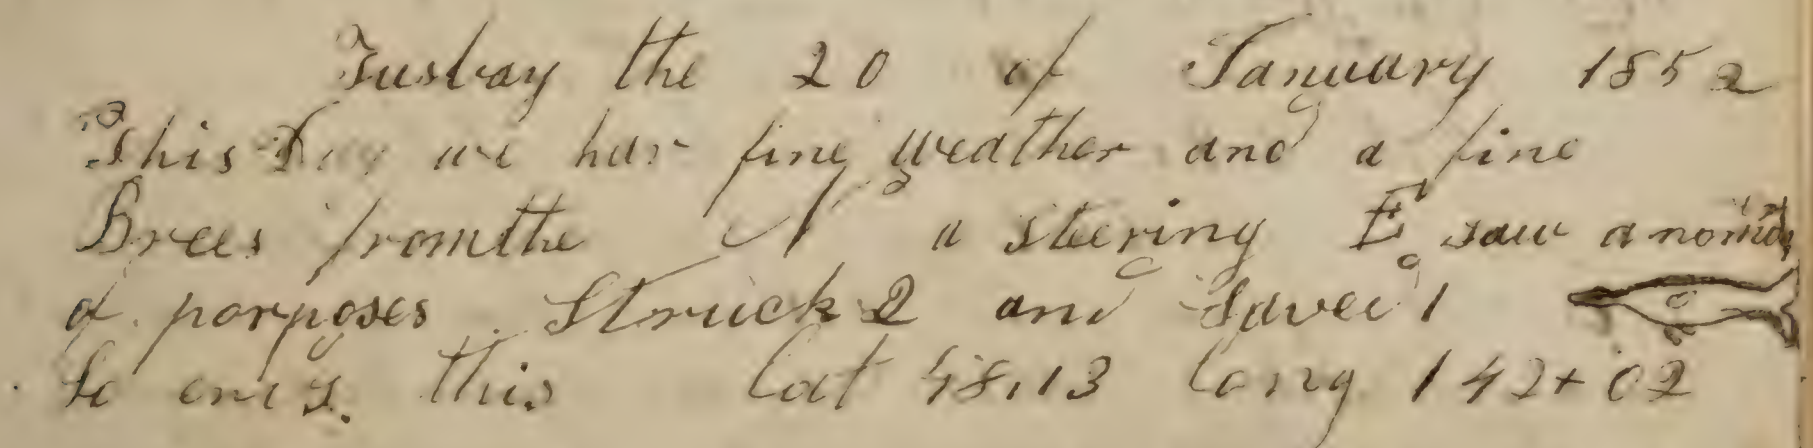 Tusday the 20 of January 1852
This Day we hav fine weather and a fine
Brees from the N a steering E saw a
of porposes Struck 2 and Saved 1
So ends this Lat 48,13 Long 142+02